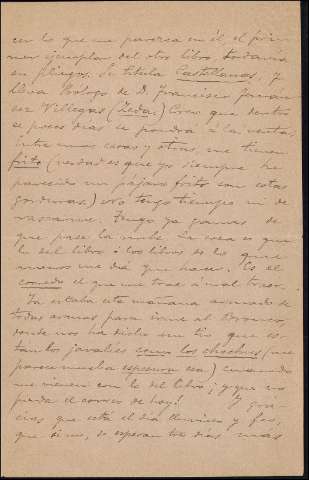 con lo que me parezca en él, el primer
mer ejemplar del otro libro, todavía
en pliegos. Se titula Castellanas, y
lleva Prólogo de D. Francisco Fernán
dez Villegas (Zeda.) Creo que dentro
de pocos días se pondrá á la venta.
Entre unas cosas y otras, me tienen
frito (verdad es que yo siempre he
parecido un pájaro frito con estas
gorduras.) No tengo tiempo ni de
rascarme. Tengo ya ganas de
que pase la nube. La cosa es que
lo del libro ó los libros es lo que
menos me dá que hacer. Es el
comedo el que me trae á mal traer.
Ya estaba esta mañana armado de
todas armas para irme al
donde nos ha dicho un tío que es
tan los jabalíes como los chochos (me
parece mucha espesura esa) cuando
me vienen con lo del libro; y que no
pierda el correo de hoy! Y gra
cias, que está el día lluvioso y feo,
que si no, se esperan tres días más